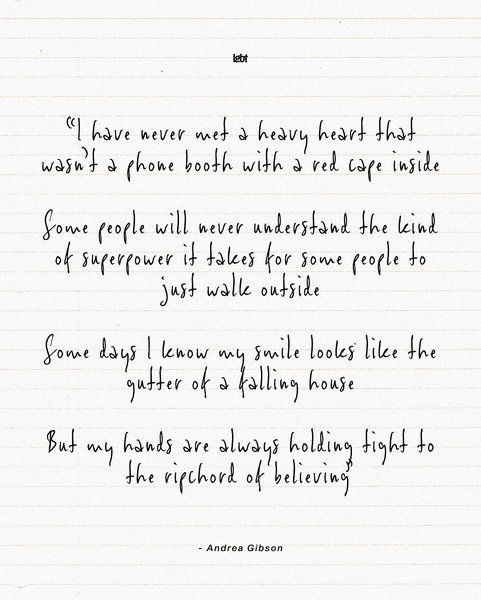 lebt
“I have never met a heavy heart that
wasn't a phone booth with a red cape inside
Some people will never understand the kind
of superpower it takes for some people to
just walk outside
Some days I know my smile looks like the
gutter of a falling house
But my hands are always holding tight to
the ripchord of believing”
- Andrea Gibson